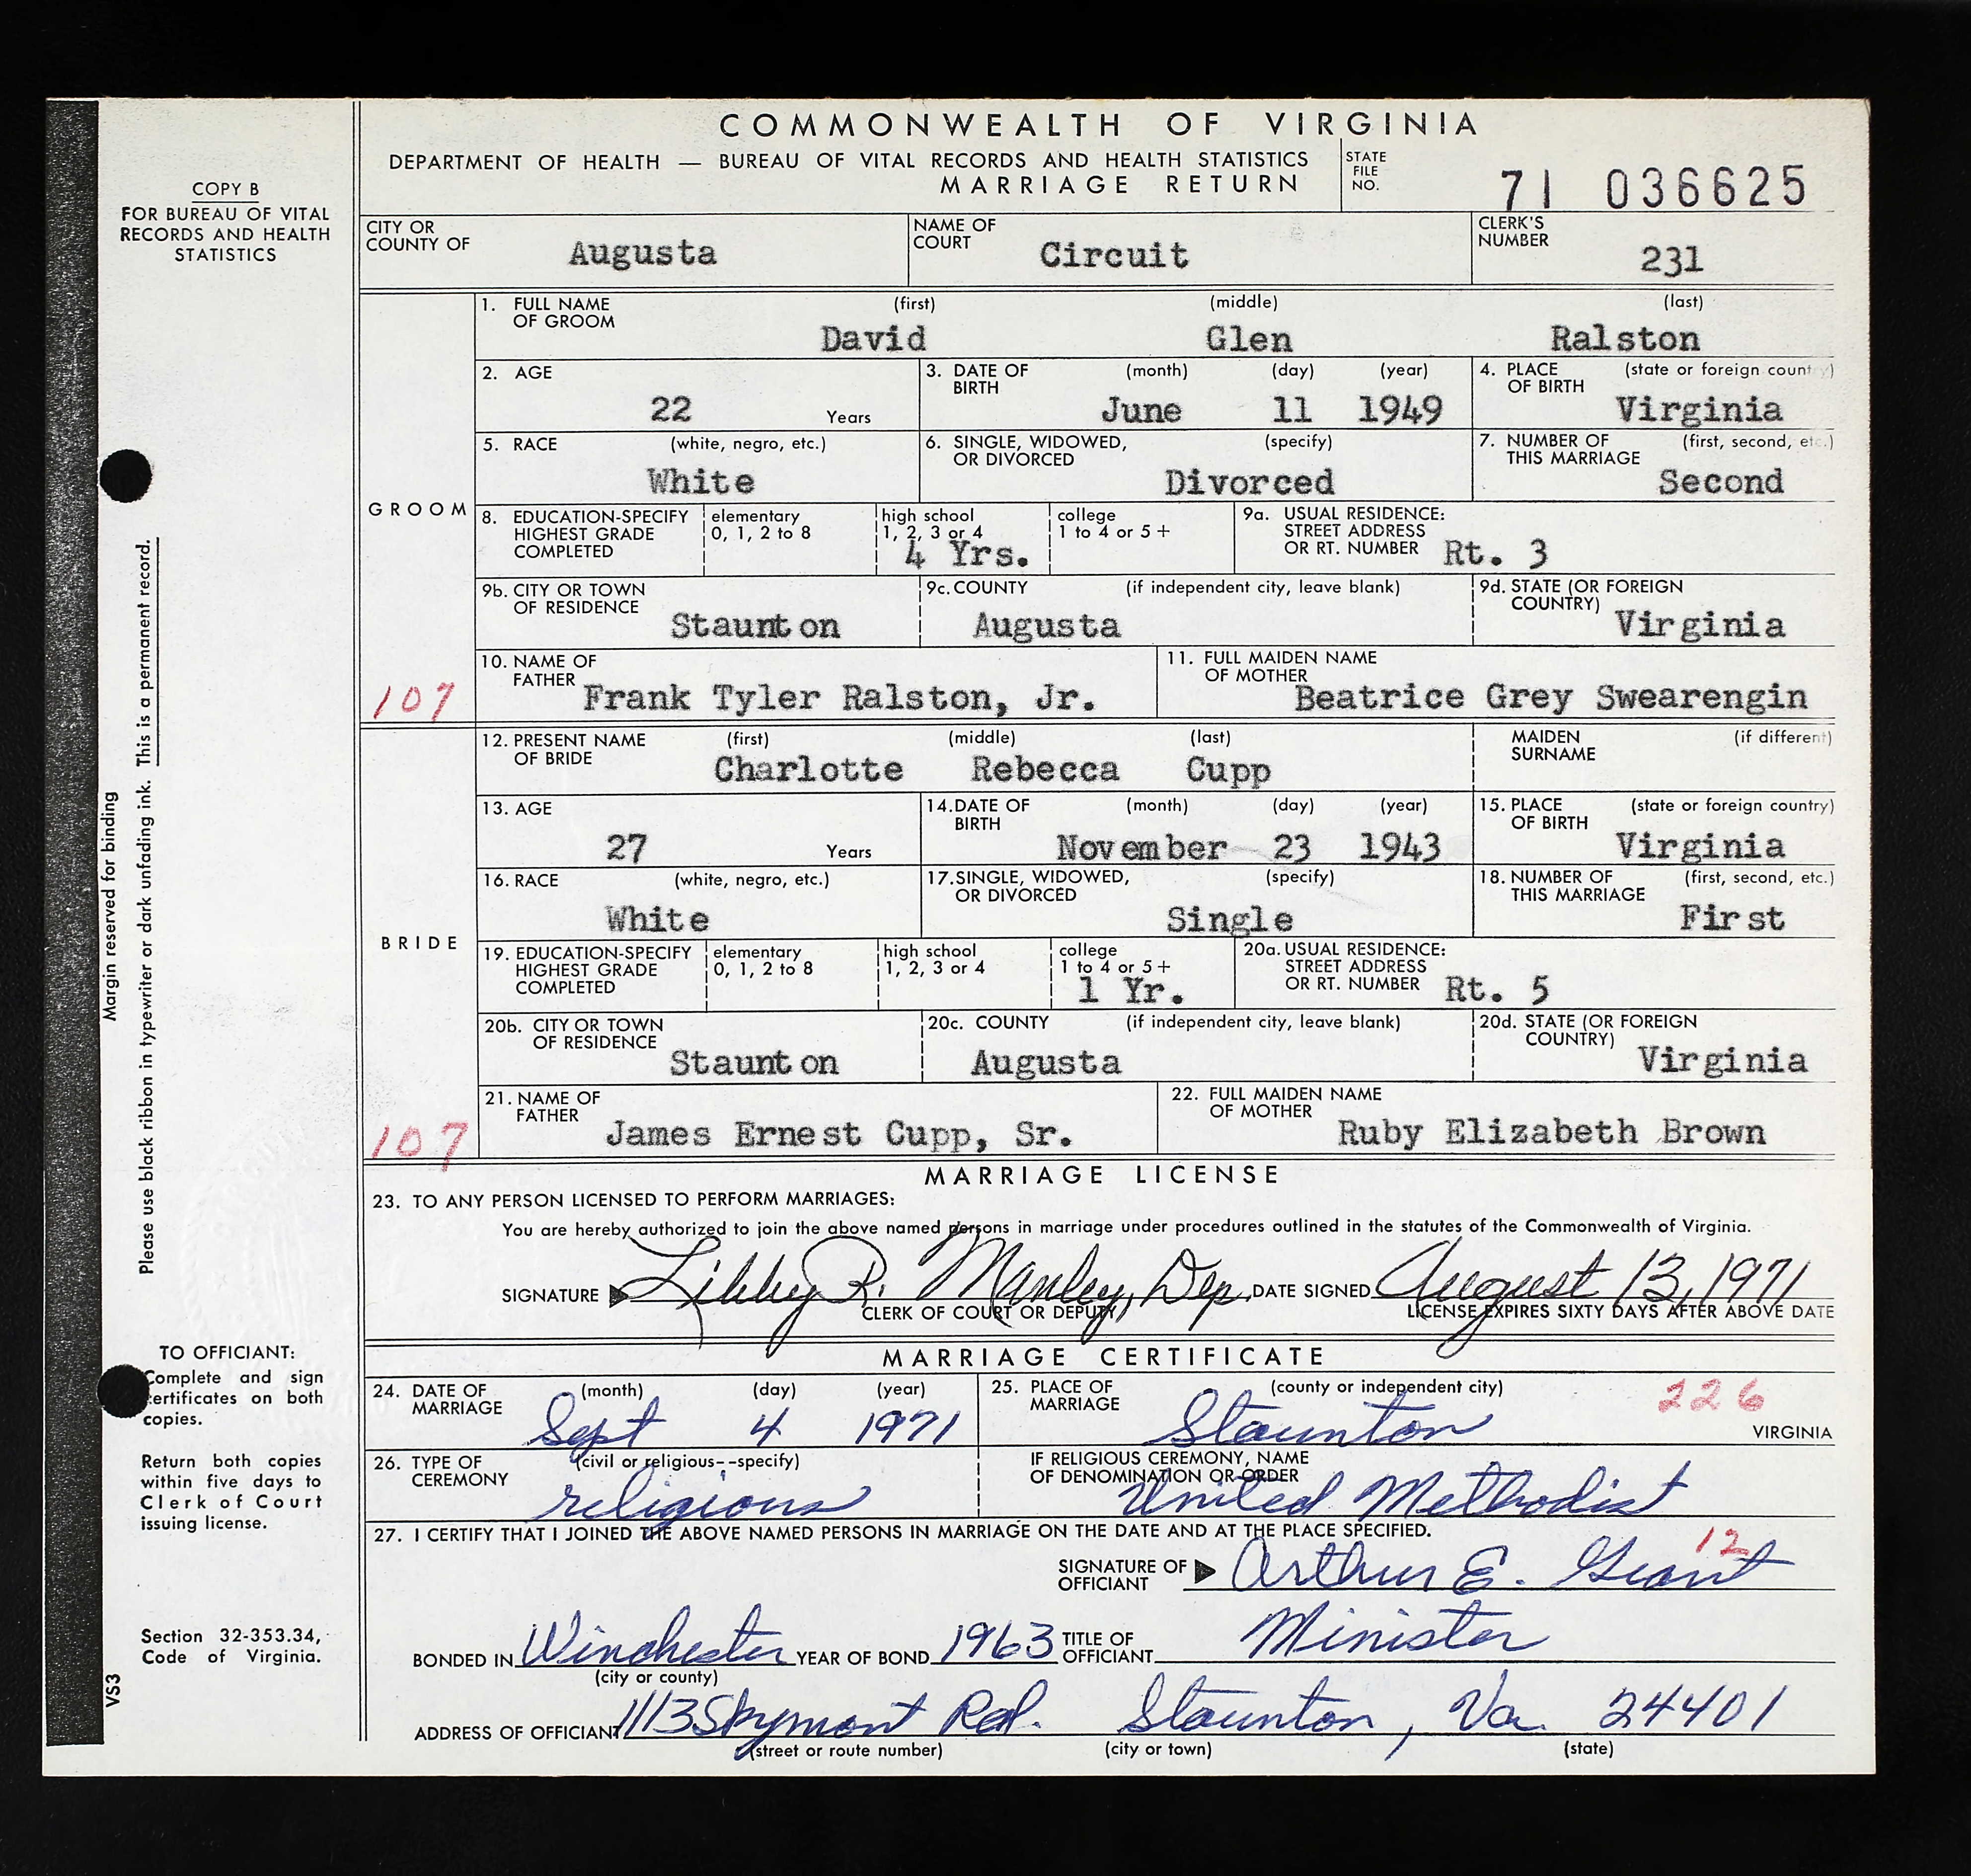 COMMONWEALTH OF VIRGINIA
DEPARTMENT OF HEALTH — BUREAU OF VITAL RECORDS AND HEALTH STATISTICS
MARRIAGE RETURN
STATE FILE NO. 71 036625
COPY B
FOR BUREAU OF VITAL
RECORDS AND HEALTH
STATISTICS
CITY OR COUNTY OF Augusta NAME OF COURT Circuit CLERK'S NUMBER 231
GROOM
1. FULL NAME OF GROOM (first) (middle) (last)
David Glen Ralston
2. AGE 22 Years 3. DATE OF BIRTH (month) (day) (year) June 11 1949 4. PLACE OF BIRTH (state or foreign country) Virginia
5. RACE (white, negro, etc.) White 6. SINGLE, WIDOWED, OR DIVORCED (specify) Divorced 7. NUMBER OF THIS MARRIAGE (first, second, etc.) Second
8. EDUCATION-SPECIFY HIGHEST GRADE COMPLETED elementary 0, 1, 2 to 8 high school 1, 2, 3 or 4 4 Yrs. college 1 to 4 or 5+ 9a. USUAL RESIDENCE: STREET ADDRESS OR RT. NUMBER Rt. 3
9b. CITY OR TOWN OF RESIDENCE Staunton 9c. COUNTY (if independent city, leave blank) Augusta 9d. STATE (OR FOREIGN COUNTRY) Virginia
10. NAME OF FATHER Frank Tyler Ralston, Jr. 11. FULL MAIDEN NAME OF MOTHER Beatrice Grey Swearengin
107
BRIDE
12. PRESENT NAME OF BRIDE (first) (middle) (last) MAIDEN SURNAME (if different)
Charlotte Rebecca Cupp
13. AGE 27 Years 14. DATE OF BIRTH (month) (day) (year) November 23 1943 15. PLACE OF BIRTH (state or foreign country) Virginia
16. RACE (white, negro, etc.) White 17. SINGLE, WIDOWED, OR DIVORCED (specify) Single 18. NUMBER OF THIS MARRIAGE (first, second, etc.) First
19. EDUCATION-SPECIFY HIGHEST GRADE COMPLETED elementary 0, 1, 2 to 8 high school 1, 2, 3 or 4 college 1 to 4 or 5+ 1 Yr. 20a. USUAL RESIDENCE: STREET ADDRESS OR RT. NUMBER Rt. 5
20b. CITY OR TOWN OF RESIDENCE Staunton 20c. COUNTY (if independent city, leave blank) Augusta 20d. STATE (OR FOREIGN COUNTRY) Virginia
21. NAME OF FATHER James Ernest Cupp, Sr. 22. FULL MAIDEN NAME OF MOTHER Ruby Elizabeth Brown
107
MARRIAGE LICENSE
23. TO ANY PERSON LICENSED TO PERFORM MARRIAGES:
You are hereby authorized to join the above named persons in marriage under procedures outlined in the statutes of the Commonwealth of Virginia.
SIGNATURE Libby R. Manley, Dep. DATE SIGNED August 13, 1971
CLERK OF COURT OR DEPUTY LICENSE EXPIRES SIXTY DAYS AFTER ABOVE DATE
MARRIAGE CERTIFICATE
24. DATE OF MARRIAGE (month) (day) (year) Sept 4 1971 25. PLACE OF MARRIAGE (county or independent city) Staunton 226 VIRGINIA
26. TYPE OF CEREMONY (civil or religious--specify) religious IF RELIGIOUS CEREMONY, NAME OF DENOMINATION OR ORDER United Methodist
27. I CERTIFY THAT I JOINED THE ABOVE NAMED PERSONS IN MARRIAGE ON THE DATE AND AT THE PLACE SPECIFIED.
12
SIGNATURE OF OFFICIANT Arthur E. Grant
BONDED IN Winchester YEAR OF BOND 1963 TITLE OF OFFICIANT Minister
(city or county)
ADDRESS OF OFFICIANT 1113 Skymont Rd. Staunton, Va. 24401
(street or route number) (city or town) (state)
Margin reserved for binding
Please use black ribbon in typewriter or dark unfading ink. This is a permanent record.
TO OFFICIANT:
Complete and sign
certificates on both
copies.
Return both copies
within five days to
Clerk of Court
issuing license.
Section 32-353.34,
Code of Virginia.
VS3